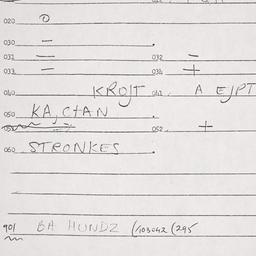 020 0
030 —
031 — 032 —
033 — 034 +
040 KROJT 041 A EJPT
050 KA, CHAN
052. +
060 STRONKES
901 BA HUNDZ (103042 (295